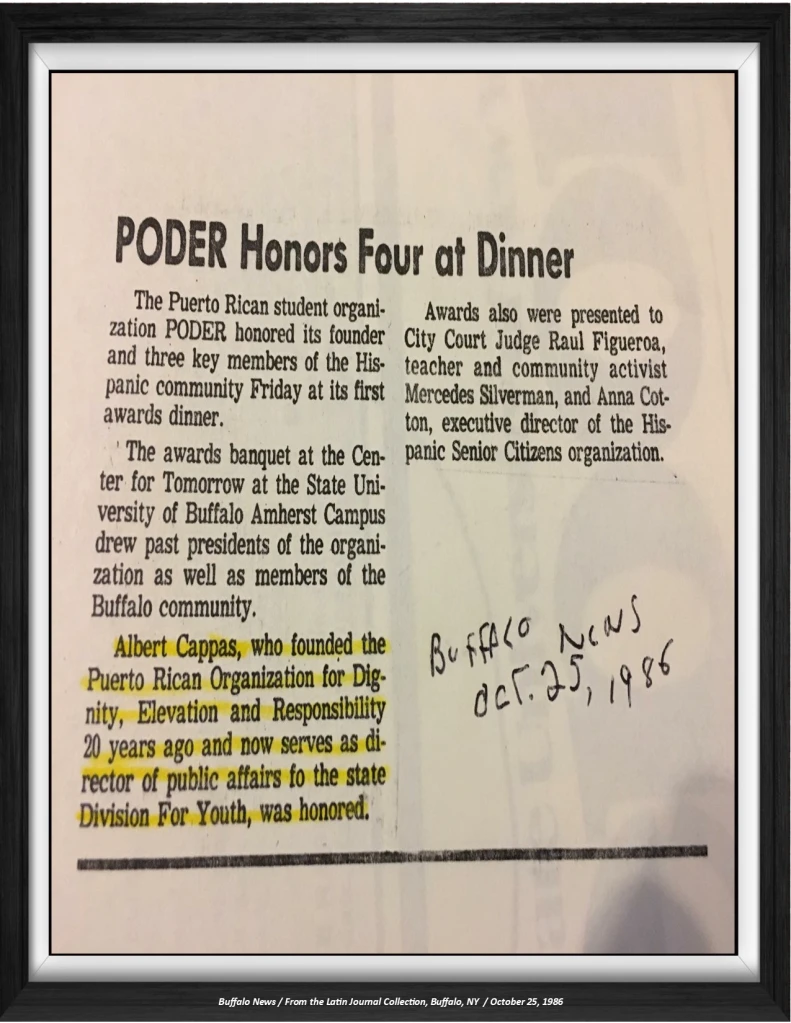 PODER Honors Four at Dinner
The Puerto Rican student organi-
zation PODER honored its founder
and three key members of the His-
panic community Friday at its first
awards dinner.
The awards banquet at the Cen-
ter for Tomorrow at the State Uni-
versity of Buffalo Amherst Campus
drew past presidents of the organi-
zation as well as members of the
Buffalo community.
Albert Cappas, who founded the
Puerto Rican Organization for Dig-
nity, Elevation and Responsibility
20 years ago and now serves as di-
rector of public affairs fo the state
Division For Youth, was honored.
Awards also were presented to
City Court Judge Raul Figueroa,
teacher and community activist
Mercedes Silverman, and Anna Cot-
ton, executive director of the His-
panic Senior Citizens organization.
BUFFALO NEWS
OCT. 25, 1986
Buffalo News / From the Latin Journal Collection, Buffalo, NY / October 25, 1986